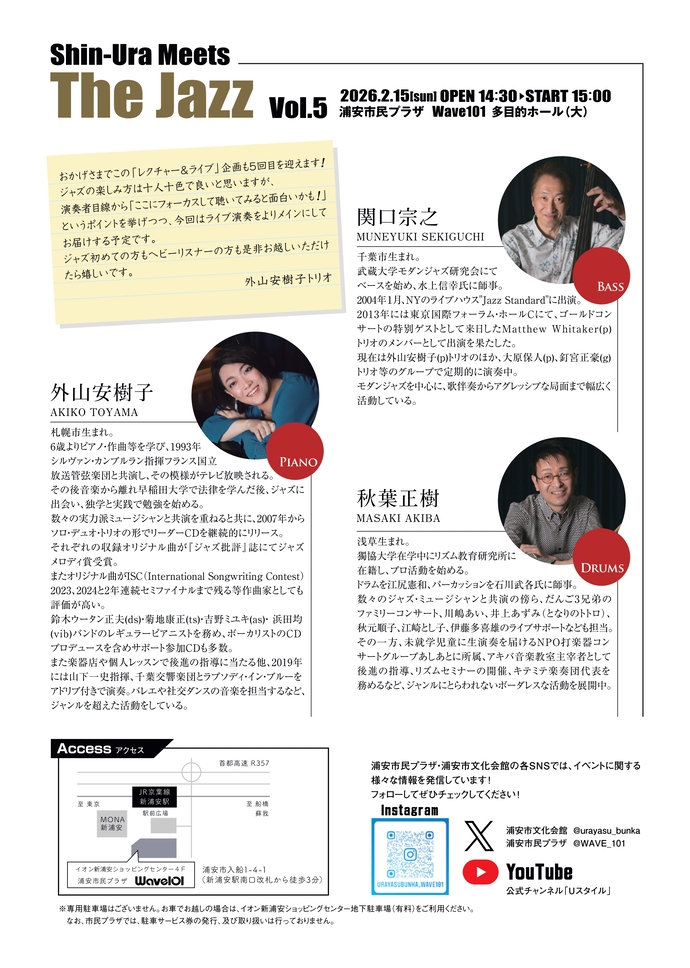 Shin-Ura Meets
The Jazz Vol.5
2026.2.15[sun] OPEN 14:30▶START 15:00
浦安市民プラザ Wave101 多目的ホール（大）
おかげさまでこの「レクチャー&ライブ」企画も5回目を迎えます!
ジャズの楽しみ方は十人十色で良いと思いますが、
演奏者目線から「ここにフォーカスして聴いてみると面白いかも!」
というポイントを挙げつつ、今回はライブ演奏をよりメインにして
お届けする予定です。
ジャズ初めての方もヘビーリスナーの方も是非お越しいただけ
たら嬉しいです。
外山安樹子トリオ
関口宗之
MUNEYUKI SEKIGUCHI
BASS
千葉市生まれ。
武蔵大学モダンジャズ研究会にて
ベースを始め、水上信幸氏に師事。
2004年1月、NYのライブハウス"Jazz Standard"に出演。
2013年には東京国際フォーラム・ホールCにて、ゴールドコン
サートの特別ゲストとして来日したMatthew Whitaker(p)
トリオのメンバーとして出演を果たした。
現在は外山安樹子(p)トリオのほか、大原保人(p)、釘宮正豪(g)
トリオ等のグループで定期的に演奏中。
モダンジャズを中心に、歌伴奏からアグレッシブな局面まで幅広く
活動している。
外山安樹子
AKIKO TOYAMA
PIANO
札幌市生まれ。
6歳よりピアノ・作曲等を学び、1993年
シルヴァン・カンブルラン指揮フランス国立
放送管弦楽団と共演し、その模様がテレビ放映される。
その後音楽から離れ早稲田大学で法律を学んだ後、ジャズに
出会い、独学と実践で勉強を始める。
数々の実力派ミュージシャンと共演を重ねると共に、2007年から
ソロ・デュオ・トリオの形でリーダーCDを継続的にリリース。
それぞれの収録オリジナル曲が『ジャズ批評』誌にてジャズ
メロディ賞受賞。
またオリジナル曲がISC（International Songwriting Contest）
2023、2024と2年連続セミファイナルまで残る等作曲家としても
評価が高い。
鈴木ウータン正夫(ds)・菊地康正(ts)・吉野ミユキ(as)・ 浜田均
(vib)バンドのレギュラーピアニストを務め、ボーカリストのCD
プロデュースを含めサポート参加CDも多数。
また楽器店や個人レッスンで後進の指導に当たる他、2019年
には山下一史指揮、千葉交響楽団とラプソディ・イン・ブルーを
アドリブ付きで演奏。バレエや社交ダンスの音楽を担当するなど、
ジャンルを超えた活動をしている。
秋葉正樹
MASAKI AKIBA
DRUMS
浅草生まれ。
獨協大学在学中にリズム教育研究所に
在籍し、プロ活動を始める。
ドラムを江尻憲和、パーカッションを石川武各氏に師事。
数々のジャズ・ミュージシャンと共演の傍ら、だんご3兄弟の
ファミリーコンサート、川嶋あい、井上あずみ（となりのトトロ）、
秋元順子、江崎とし子、伊藤多喜雄のライブサポートなども担当。
その一方、未就学児童に生演奏を届けるNPO打楽器コン
サートグループあしあとに所属、アキバ音楽教室主宰者として
後進の指導、リズムセミナーの開催、キテミテ楽奏団代表を
務めるなど、ジャンルにとらわれないボーダレスな活動を展開中。
Access アクセス
首都高速 R357
JR京葉線
新浦安駅
至 東京
至 船橋
蘇我
駅前広場
MONA
新浦安
イオン新浦安ショッピングセンター4F
浦安市民プラザ Wave101
浦安市入船1-4-1
（新浦安駅南口改札から徒歩3分）
浦安市民プラザ・浦安市文化会館の各SNSでは、イベントに関する
様々な情報を発信しています!
フォローしてぜひチェックしてください!
Instagram
URAYASUBUNKA_WAVE101
浦安市文化会館 @urayasu_bunka
浦安市民プラザ @WAVE_101
YouTube
公式チャンネル「Uスタイル」
※専用駐車場はございません。お車でお越しの場合は、イオン新浦安ショッピングセンター地下駐車場（有料）をご利用ください。
なお、市民プラザでは、駐車サービス券の発行、及び取り扱いは行っておりません。